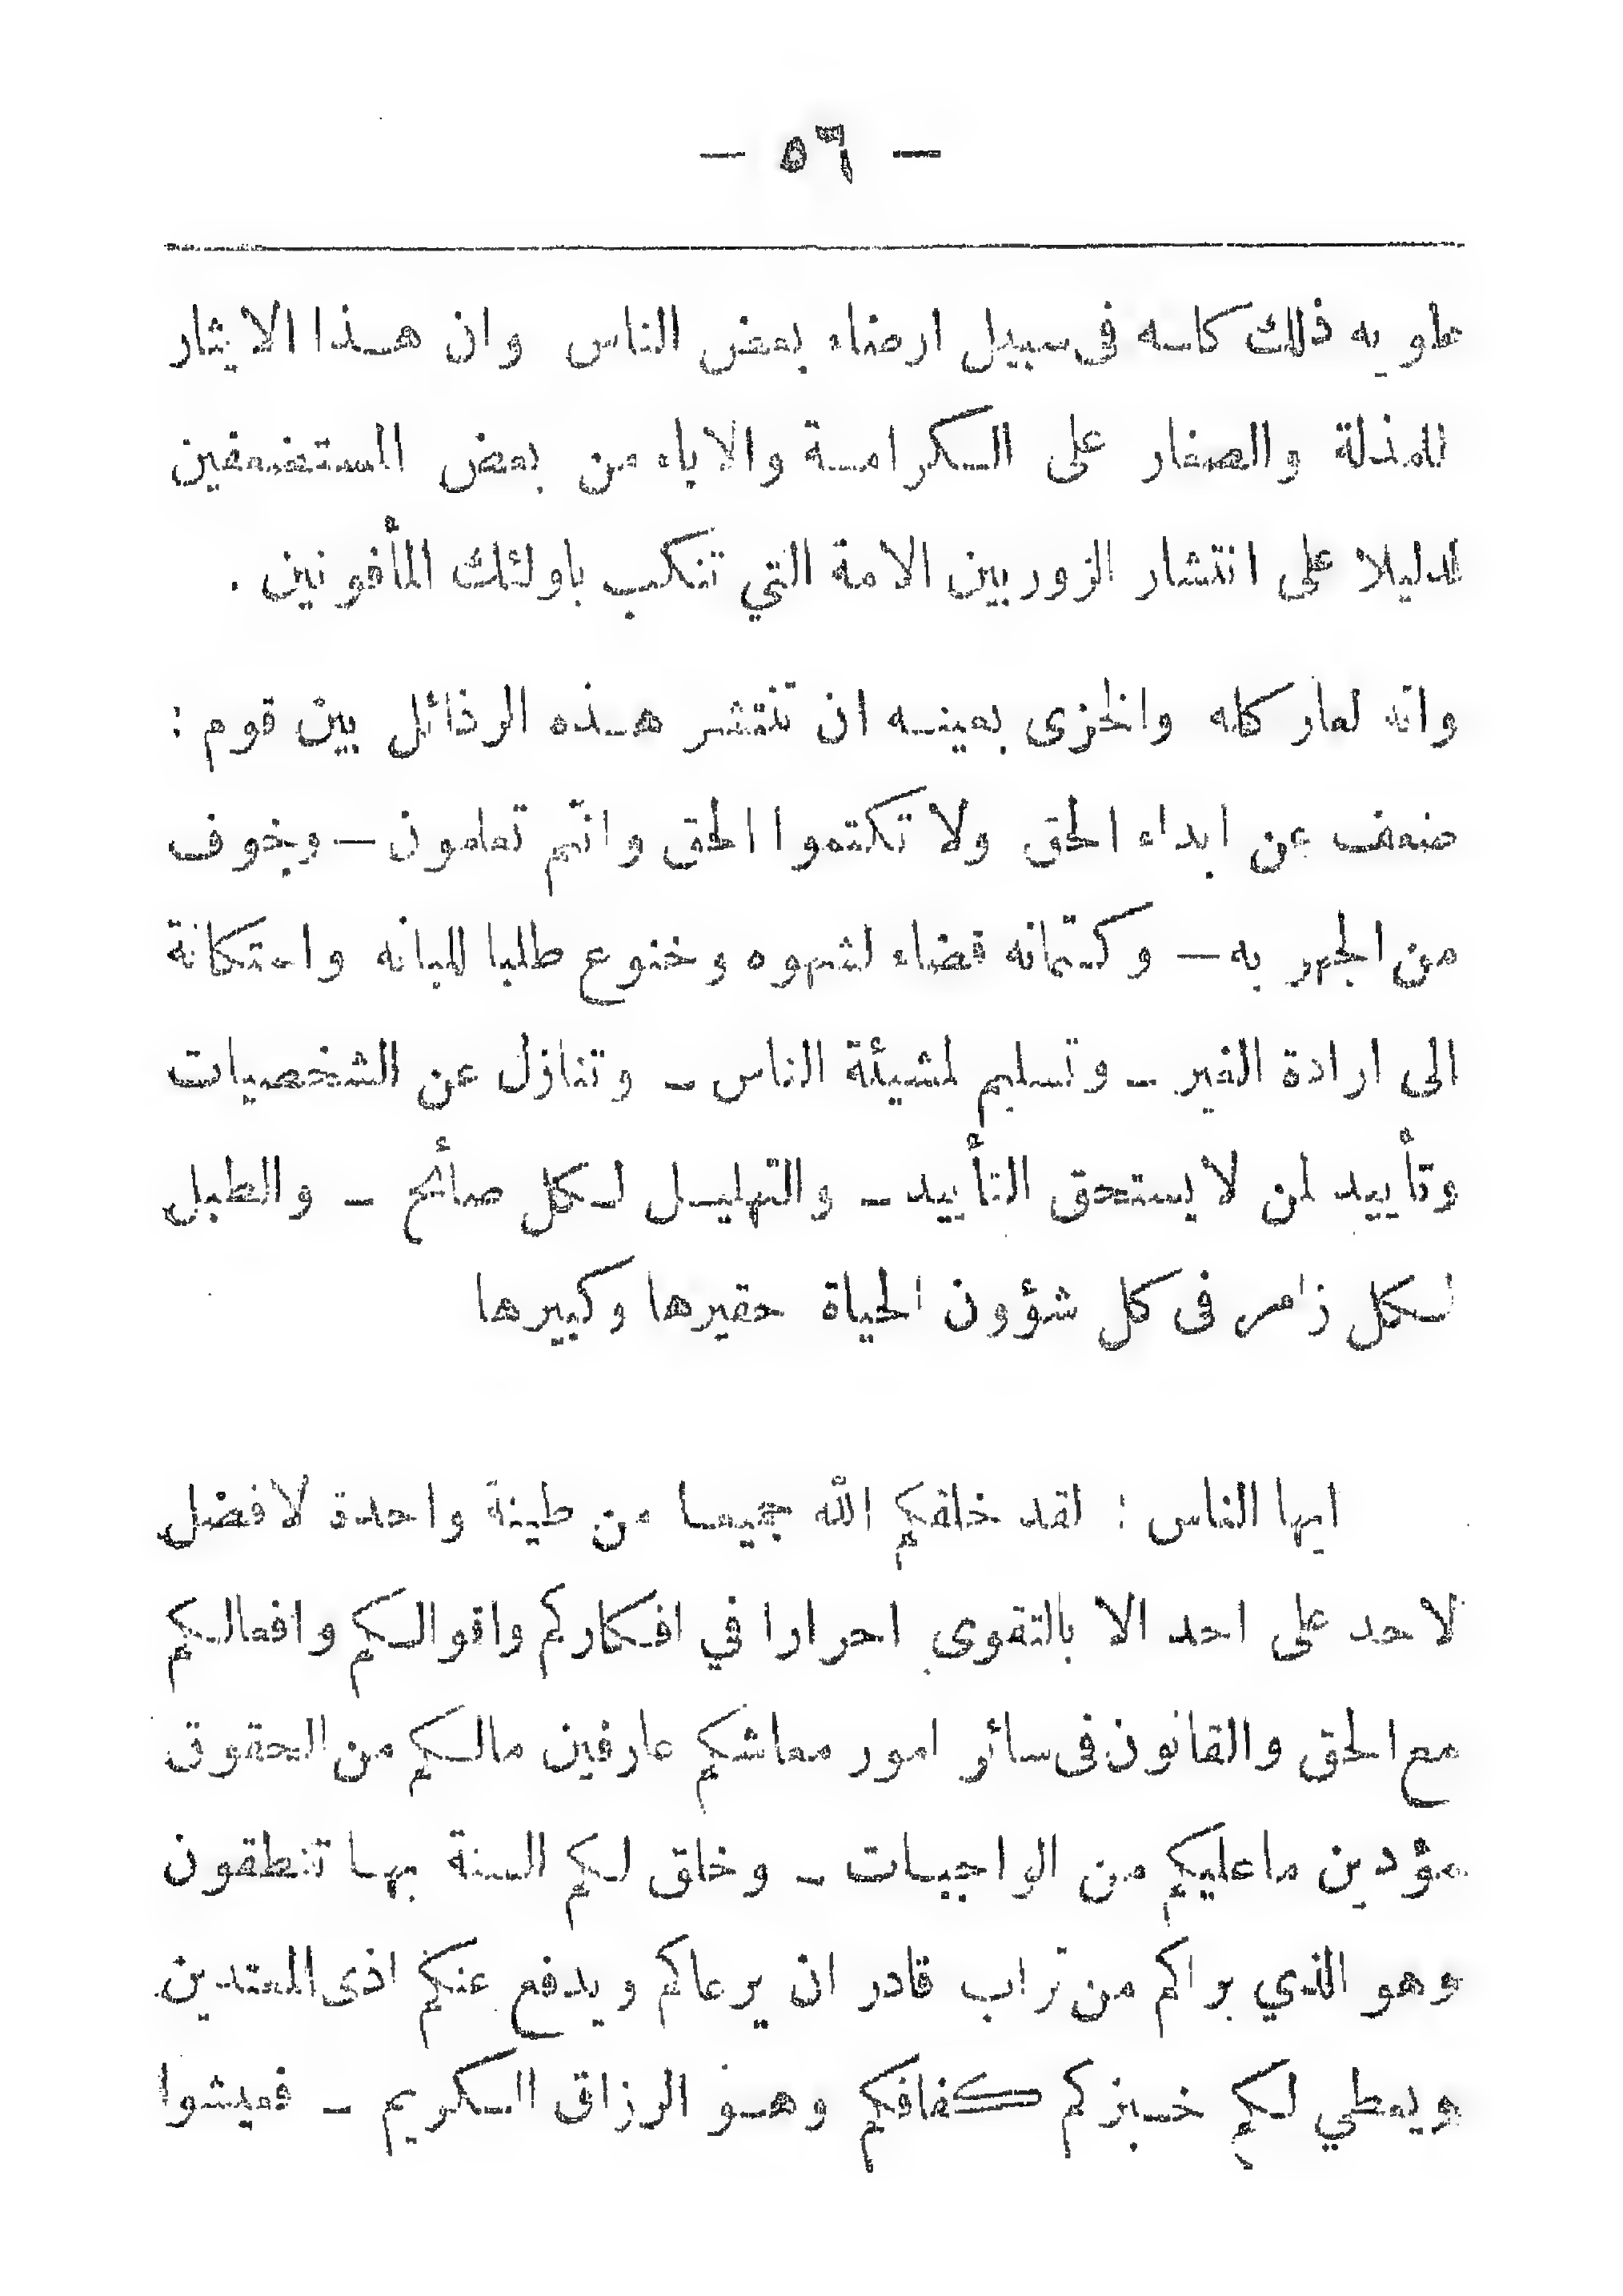 — ٥٦ —
ذلك كاسه فى سبيل ارضاء بعض الناس وان هـذا الايثار
للمذلة والصغار على الـكرامـة والاباء من بعض المستضعفين
لدليلا على انتشار الزور بين الامة التي تنكب باولئك المأفونين .
وانه لعار كله والخزى بعينـه ان تنتشـر هـذه الرذائل بين قوم :
ضعف عن ابداء الحق ولا تكتموا الحق وانتم تعلمون — وخوف
من الجهر به — وكتمانه قضاء لشهوه وخنوع طلبا للبانه واستكانة
الى ارادة الغير ـ وتسليم لمشيئة الناس ـ وتنازل عن الشخصيات
وتأييد لمن لا يستحق التأييد ـ والتهليـل لـكل صائح ـ والطبل
لـكل زامر فى كل شؤون الحياة حقيرها وكبيرها
ايها الناس : لقد خلقكم الله جميعـا من طينة واحدة لا فضل
لاحد على احد الا بالتقوى احرارا في افـكاركم واقوالـكم وافعالـكم
مع الحق والقانون فى سائر امور معاشكم عارفين مالـكم من الحقوق
مؤدين ماعليكم من الواجبـات ـ وخلق لـكم السنة بهـا تنطقون
وهو الذي براكم من تراب قادر ان يرعاكم ويدفع عنكم اذى المعتدين
ويعطي لـكم خـبزكم كفافكم وهـو الرزاق الـكريم ـ فعيشوا